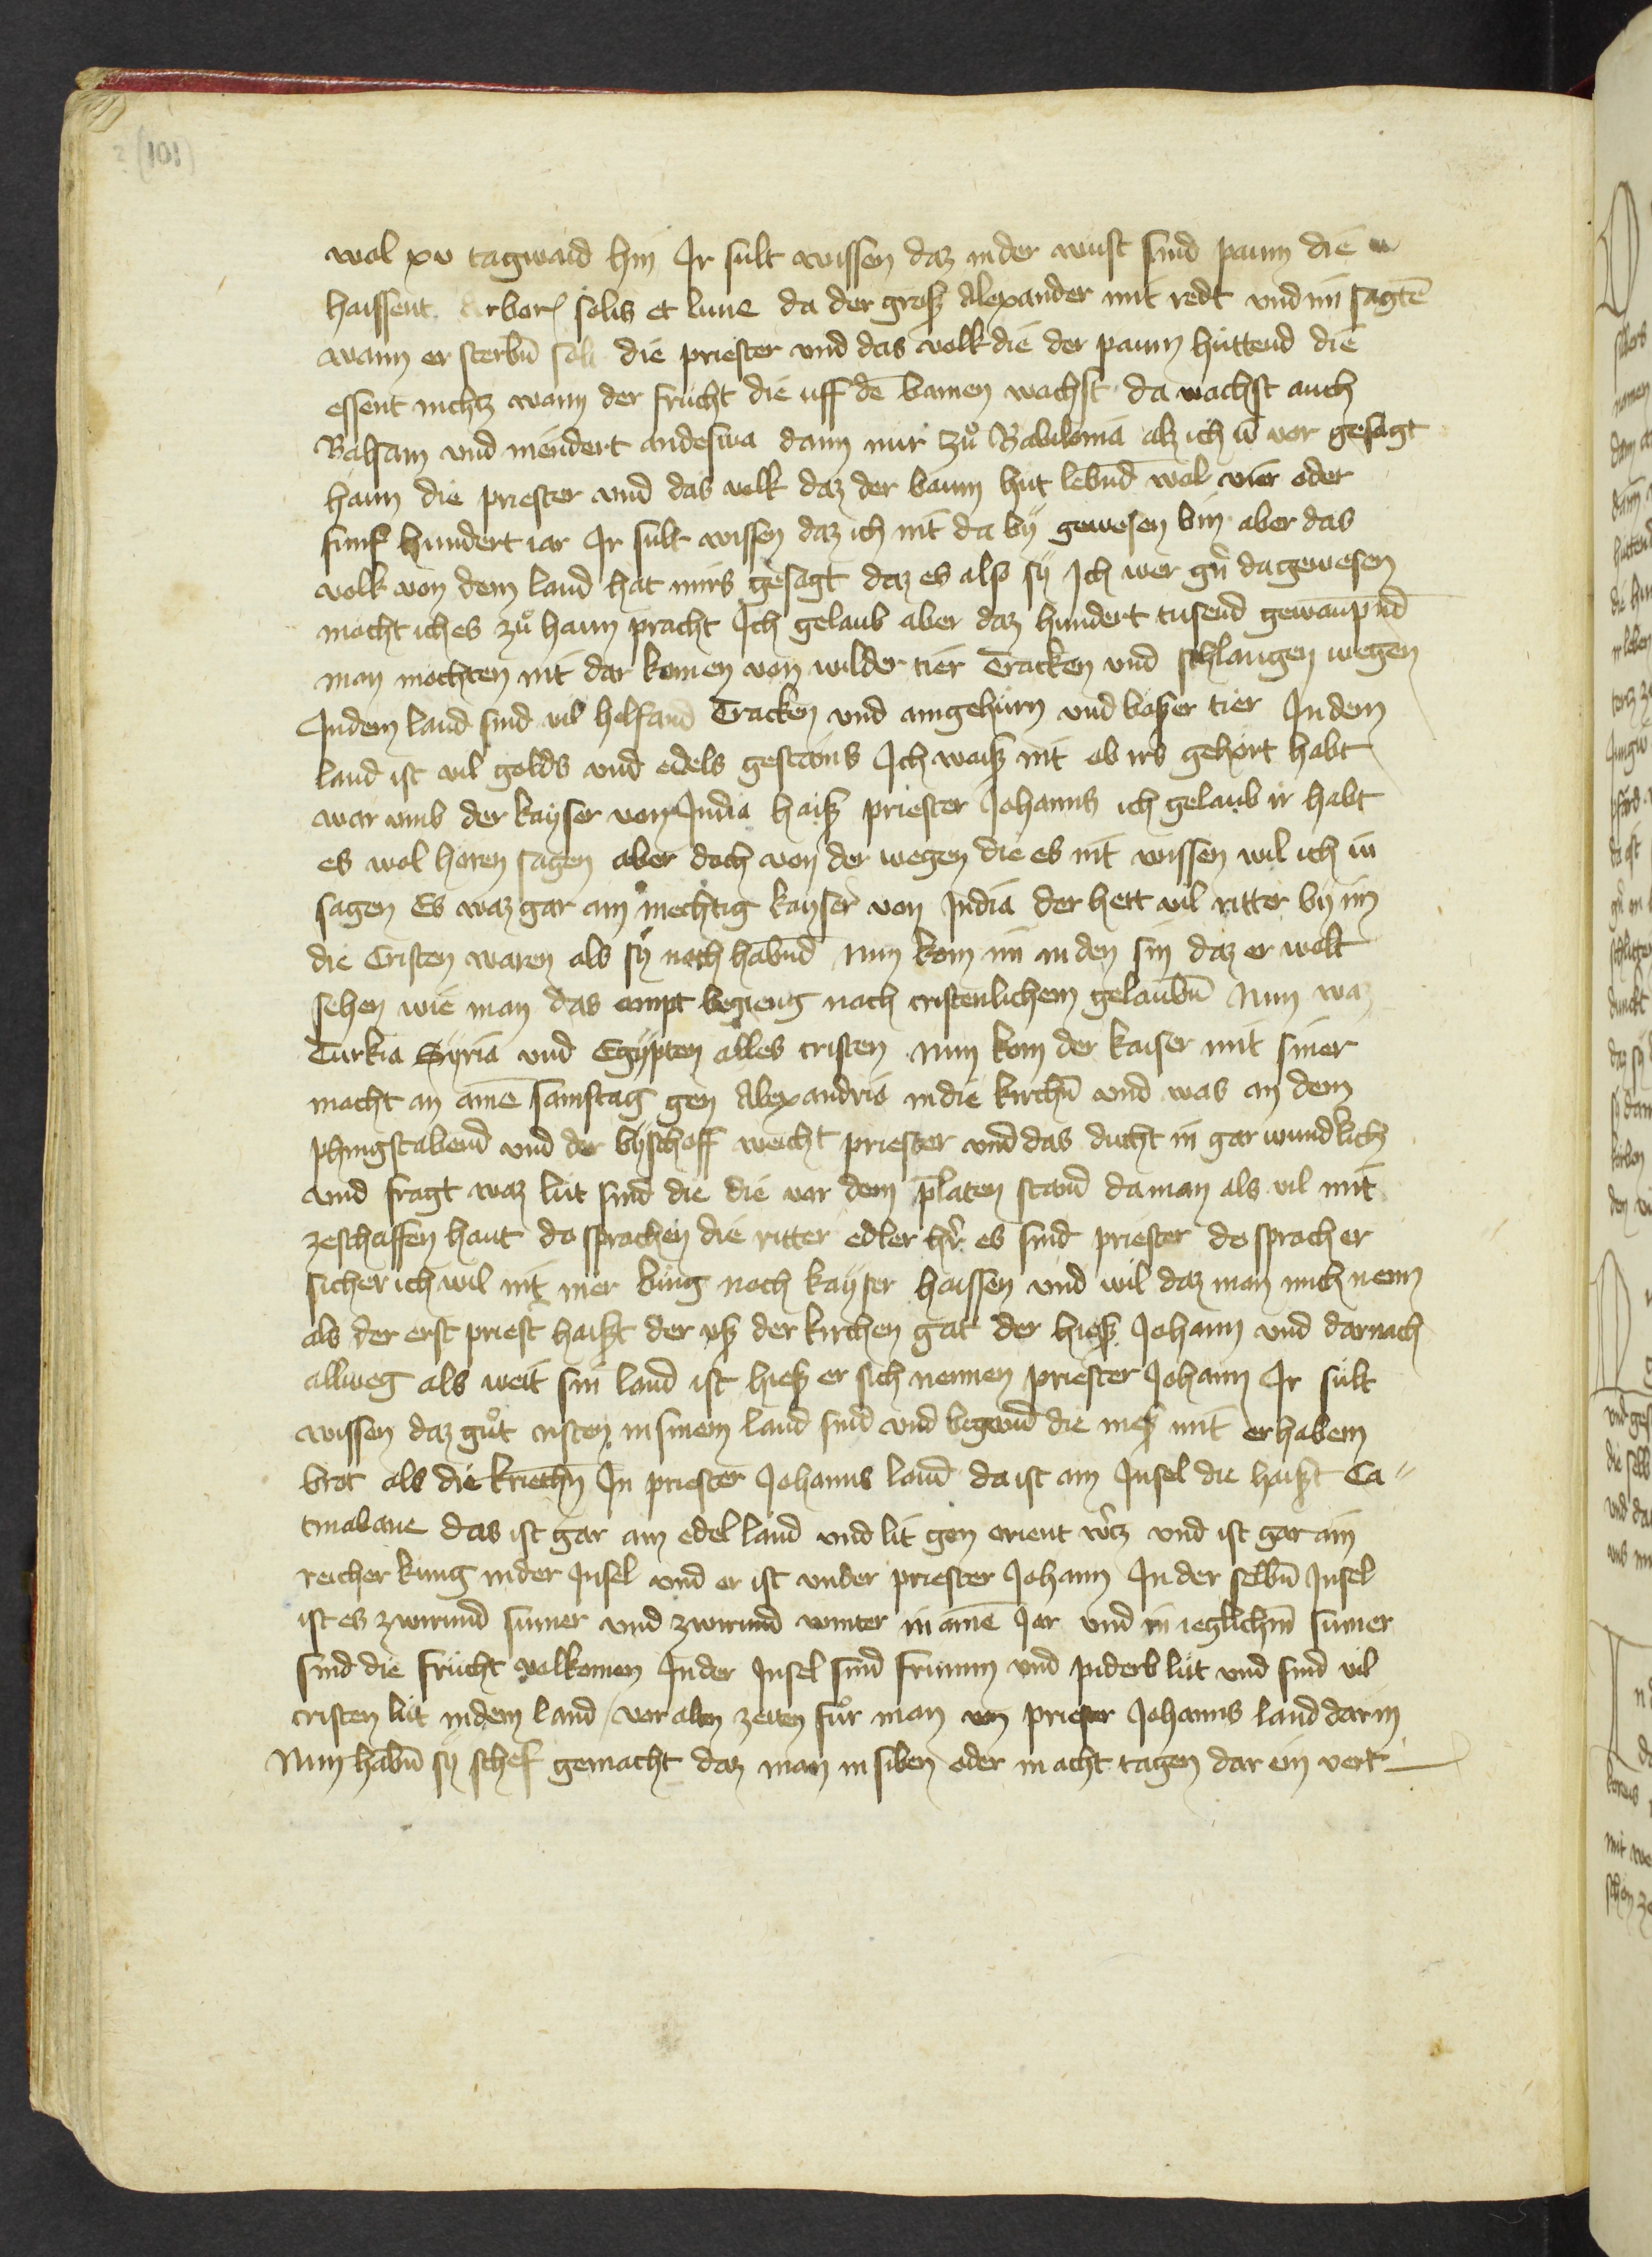 (101)
wol xv tagwaid hin Ir sült wissen daz in der wüst sind paum die
haissent Arbores solis et lune da der groß Alexander mit redt vnd im sagtē
wann er sterbn̄ solt die priester vnd das volk die der paum hüttend die
essent nichtz wann der frücht die uff dē bamen wachst da wachst auch
Balsam vnd niendert anderswa dann nur zů Babilonia alz ich ü vor gesagt
hann die priester vnd das volk daz der baum hüt lebnd wol vier oder
fünf hundert iar Ir sült wissen daz ich nit da bÿ gewesen bin aber das
volk von dem land hat mirs gesagt daz es also sÿ Ich wer gern da gewesen
möcht ich es zů hann pracht Ich gelaub aber daz hundert tusend gewaupnd
man möchten nit dar komen von wilder tier Tracken vnd schlangen wegen
In dem land sind vil helfand Tracken vnd aingehürn vnd bößer tier In dem
land ist vil golds vnd edels gestains Ich waiß nit ob irs gehört habt
war umb der kayser von India haiß priester Johanns ich gelaub ir habt
es wol hören sagen aber doch von der wegen die es nit wissen wil ich iü
sagen Es waz gar ain mechtig kayser von India der hett vil ritter bÿ im
die Cristen waren als sÿ noch habnd Nun kom im in den sin daz er wolt
sehen wie man das ampt begieng nach cristenlichem gelaubn̄ Nun waz
Turkia Syria vnd Egypten alles cristen nun kom der kaiser mit siner
macht an aine samstag gen Alexandria in die kirchn̄ vnd was an dem
phingstabend vnd der byschoff weicht priester vnd das ducht in gar wundlich
vnd fragt waz lüt sind die die vor dem p̄laten stand da man als vil mit
zeschaffen haut do sprachen die ritter edler hr̄ es sind priester do sprach er
sicher ich wil nit mer küng noch kayser haissen vnd wil daz man mich nenn
als der erst priest haißt der uß der kirchen gat der hieß Johann vnd darnach
allweg als weit sin land ist hieß er sich nennen priester Johann Ir sült
wissen daz gůt cristen in sinem land sind vnd begend die meß mit erhabem
brot als die kriechn̄ In priester Johanns land da ist ain Insel die haißt Ca⸗
tmabane das ist gar ain edel land vnd lit gen orient wertz vnd ist gar ain
reicher küng in der Insel vnd er ist vnder priester Johann In der selbn̄ Insel
ist es zwirund sumer vnd zwirund winter in aine Jar vnd in ieglichm̄ sumer
sind die frücht volkomen In der Insel sind frumm vnd piderb lüt vnd sind vil
cristen lüt in dem land / vor alten zeiten fůr man von priester Johanns land dar in
Nun habn̄ sÿ schef gemacht daz man in siben oder in acht tagen dar ein vert